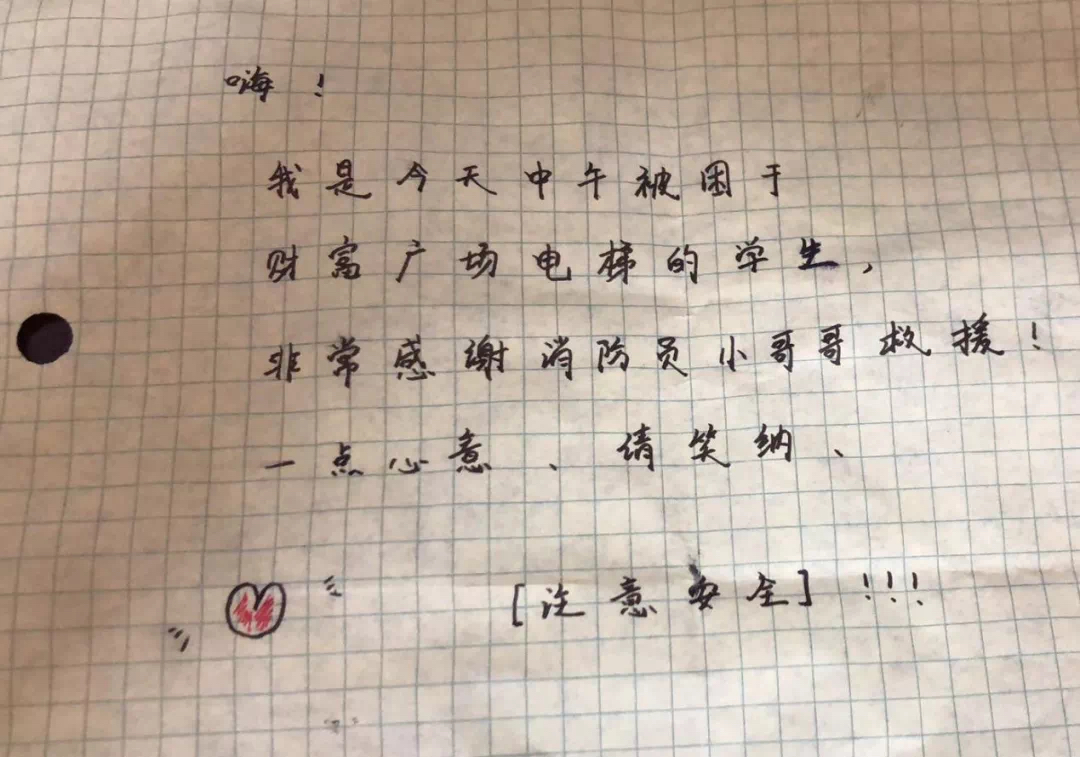 嗨！
我是今天中午被困于
财富广场电梯的学生，
非常感谢消防员小哥哥救援！
一点心意、请笑纳、
[注意安全]!!!